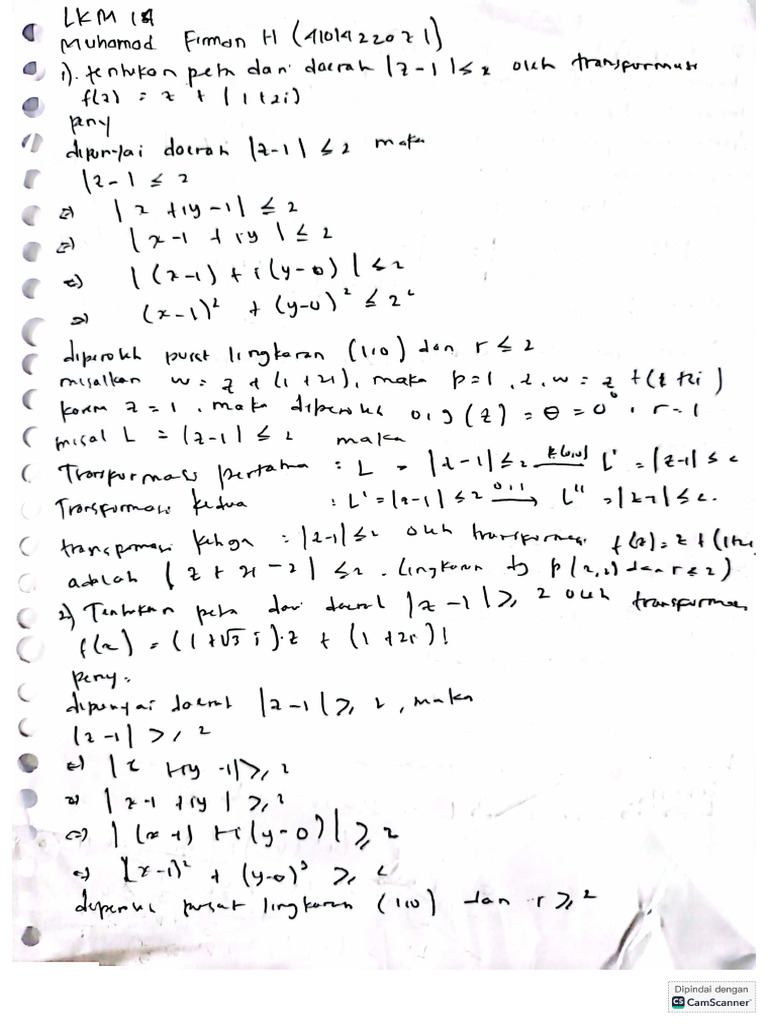 LKM 14
Muhamad Firman H (4101422071)
1). tentukan peta dari daerah |z-1| ≤ 2 oleh transformasi
f(z) = z + (1+2i)
peny
dipunyai daerah |z-1| ≤ 2 maka
|z-1 ≤ 2
⇔ |x + iy - 1| ≤ 2
⇔ |x-1 + iy| ≤ 2
⇔ |(x-1) + i(y-0)| ≤ 2
⇔ (x-1)² + (y-0)² ≤ 2²
diperoleh pusat lingkaran (1,0) dan r ≤ 2
misalkan w = z + (1+2i), maka p=1, w = z + (1+2i)
karena z = 1, maka diperoleh arg(z) = θ = 0°, r = 1
misal L = |z-1| ≤ 2 maka
Transformasi pertama : L = |z-1| ≤ 2 → L' = |z-1| ≤ 2
Transformasi kedua : L' = |z-1| ≤ 2 → L'' = |z-1| ≤ 2.
transformasi ketiga = |z-1| ≤ 2 oleh transformasi f(z) = z + (1+2i
adalah |z + 2i - 2| ≤ 2. (lingkaran dg p(2,2) dan r ≤ 2)
2) Tentukan peta dari daerah |z-1| ≥ 2 oleh transformasi
f(z) = (1+√3 i).z + (1+2i)!
peny:
dipunyai daerah |z-1| ≥ 2, maka
|z-1| ≥ 2
⇔ |x + iy - 1| ≥ 2
⇔ |x-1 + iy| ≥ 2
⇔ |(x-1) + i(y-0)| ≥ 2
⇔ (x-1)² + (y-0)² ≥
diperoleh pusat lingkaran (1,0) dan r ≥ 2
Dipindai dengan
CS CamScanner